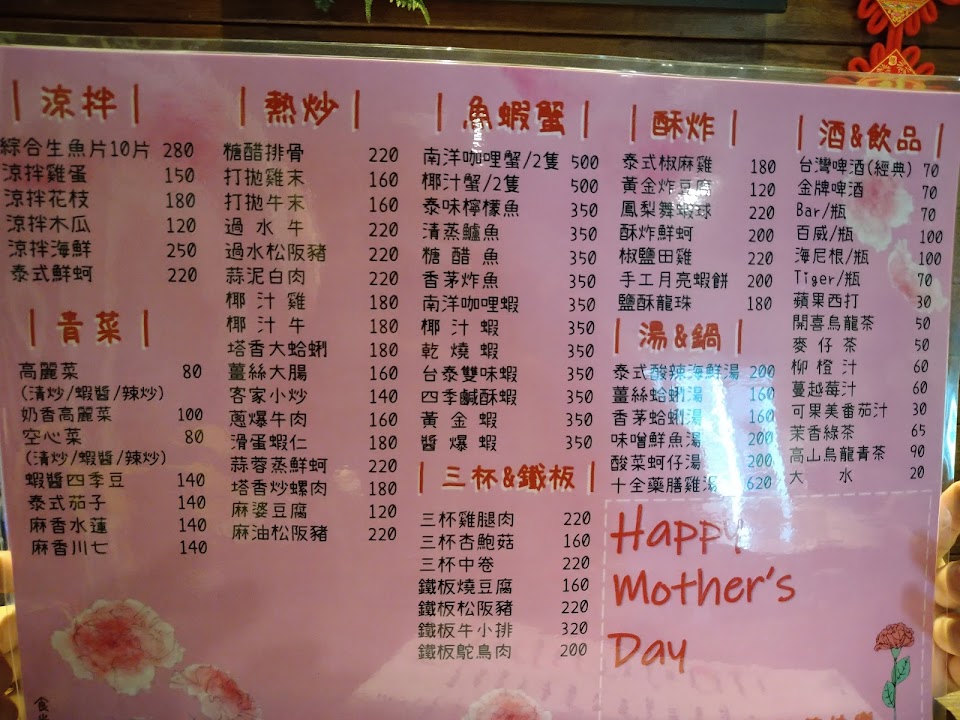 涼拌
綜合生魚片10片 280
涼拌雞蛋 150
涼拌花枝 180
涼拌木瓜 120
涼拌海鮮 250
泰式鮮蚵 220
青菜
高麗菜 80
(清炒/蝦醬/辣炒)
奶香高麗菜 100
空心菜 80
(清炒/蝦醬/辣炒)
蝦醬四季豆 140
泰式茄子 140
麻香水蓮 140
麻香川七 140
熱炒
糖醋排骨 220
打拋雞末 160
打拋牛末 160
過水牛 220
過水松阪豬 220
蒜泥白肉 200
椰汁雞 180
椰汁牛 180
塔香大蛤蜊 180
薑絲大腸 160
客家小炒 140
蔥爆牛肉 160
滑蛋蝦仁 180
蒜蓉蒸鮮蚵 220
塔香炒螺肉 180
麻婆豆腐 120
麻油松阪豬 220
魚蝦蟹
南洋咖哩蟹/2隻 500
椰汁蟹/2隻 500
泰味檸檬魚 350
清蒸鱸魚 350
糖醋魚 350
香茅炸魚 350
南洋咖哩蝦 350
椰汁蝦 350
乾燒蝦 350
台泰雙味蝦 350
四季鹹酥蝦 350
黃金蝦 350
醬爆蝦 350
三杯&鐵板
三杯雞腿肉 220
三杯杏鮑菇 160
三杯中卷 220
鐵板燒豆腐 160
鐵板松阪豬 220
鐵板牛小排 320
鐵板鴕鳥肉 200
酥炸
泰式椒麻雞 180
黃金炸豆腐 120
鳳梨舞蝦球 220
酥炸鮮蚵 200
椒鹽田雞 220
手工月亮蝦餅 200
鹽酥龍珠 180
湯&鍋
泰式酸辣海鮮湯 200
薑絲蛤蜊湯 160
香茅蛤蜊湯 160
味噌鮮魚湯 200
酸菜蚵仔湯 200
十全藥膳雞湯 620
酒&飲品
台灣啤酒(經典) 70
金牌啤酒 70
Bar/瓶 70
百威/瓶 100
海尼根/瓶 100
Tiger/瓶 70
蘋果西打 30
開喜烏龍茶 50
麥仔茶 50
柳橙汁 60
蔓越莓汁 60
可果美番茄汁 30
茉香綠茶 65
高山烏龍青茶 90
大水 20
Happy
Mother's
Day